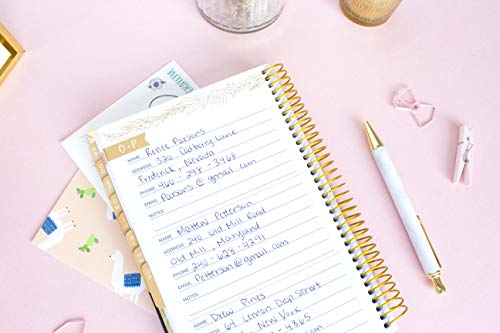 GRATEFUL
O-P
NAME Renee Parsons
ADDRESS 320 Dadberry Lane
Frederick, Nevada
PHONE 460-298-3468
EMAIL Parsons@gmail.com
NOTES
NAME Mattew Petterson
ADDRESS 240 Old Mill Road
Old Mill, Maryland
PHONE 240-628-4291
EMAIL Petterson@gmail.com
NOTES
NAME Drew Pines
ADDRESS 64 Lemon Drop Street
New York
4365